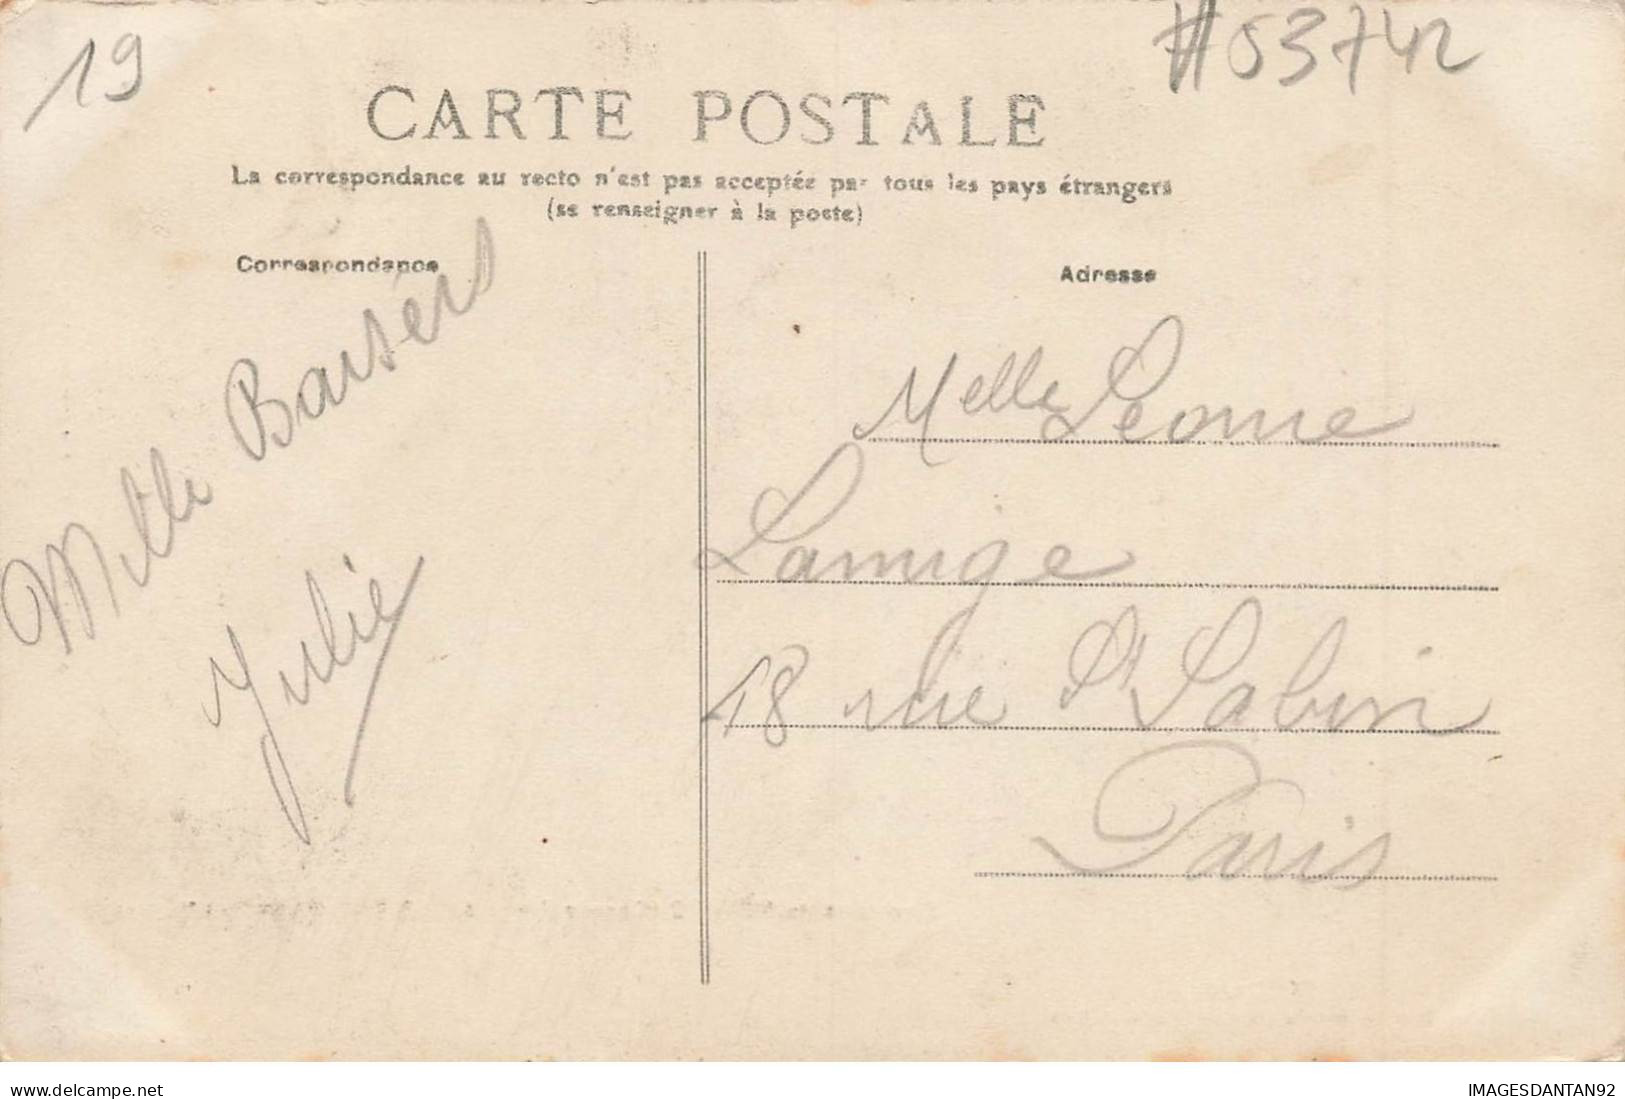 19
#53742
CARTE POSTALE
La correspondance au recto n'est pas acceptée par tous les pays étrangers
(se renseigner à la poste)
Correspondance
Adresse
Mille Baisers
Julie
Melle Léonie
Lamige
18 rue St Sabin
Paris
www.delcampe.net
IMAGESDANTAN92